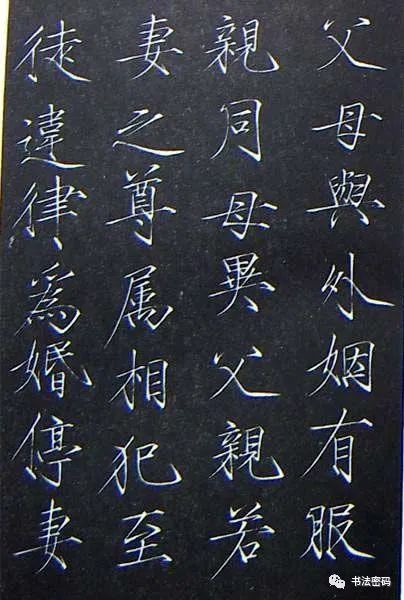 父母與外姻有服
親同母異父親若
妻之尊属相犯至
徒違律爲婚停妻
书法密码